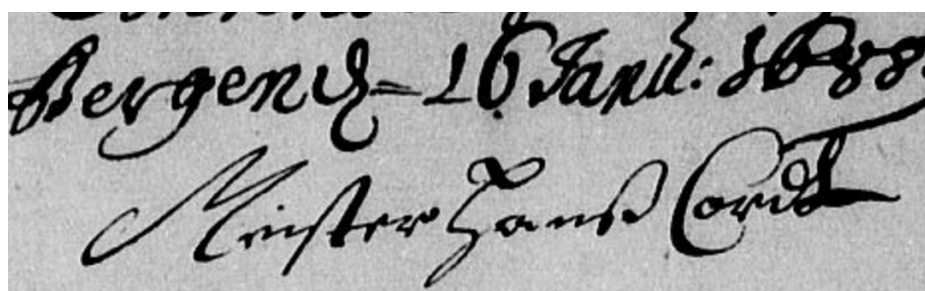 Bergen d= 16 Janu: 1688
Meister Hanß Cordt